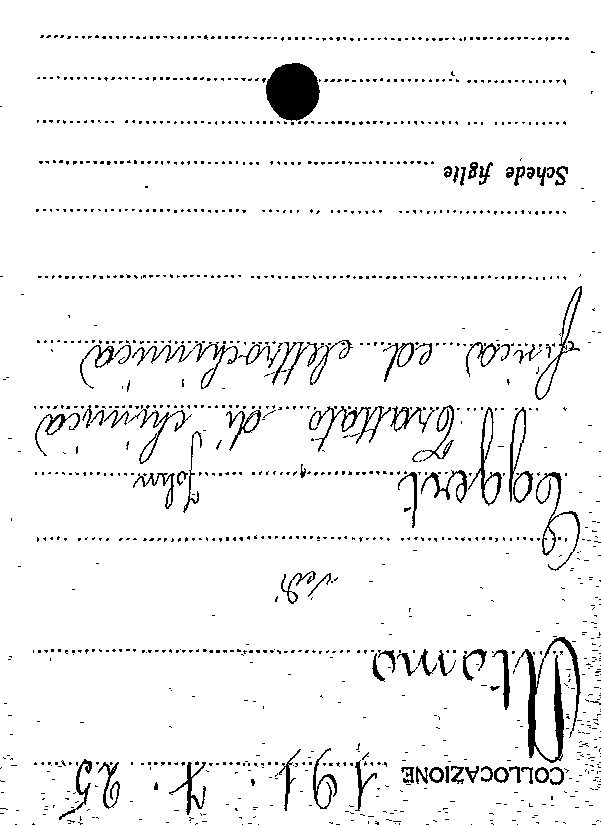 COLLOCAZIONE 191. 7. 25
Atomo
vedi
Eggert, John
Trattato di chimica
fisica ed elettrochimica
Schede figlie